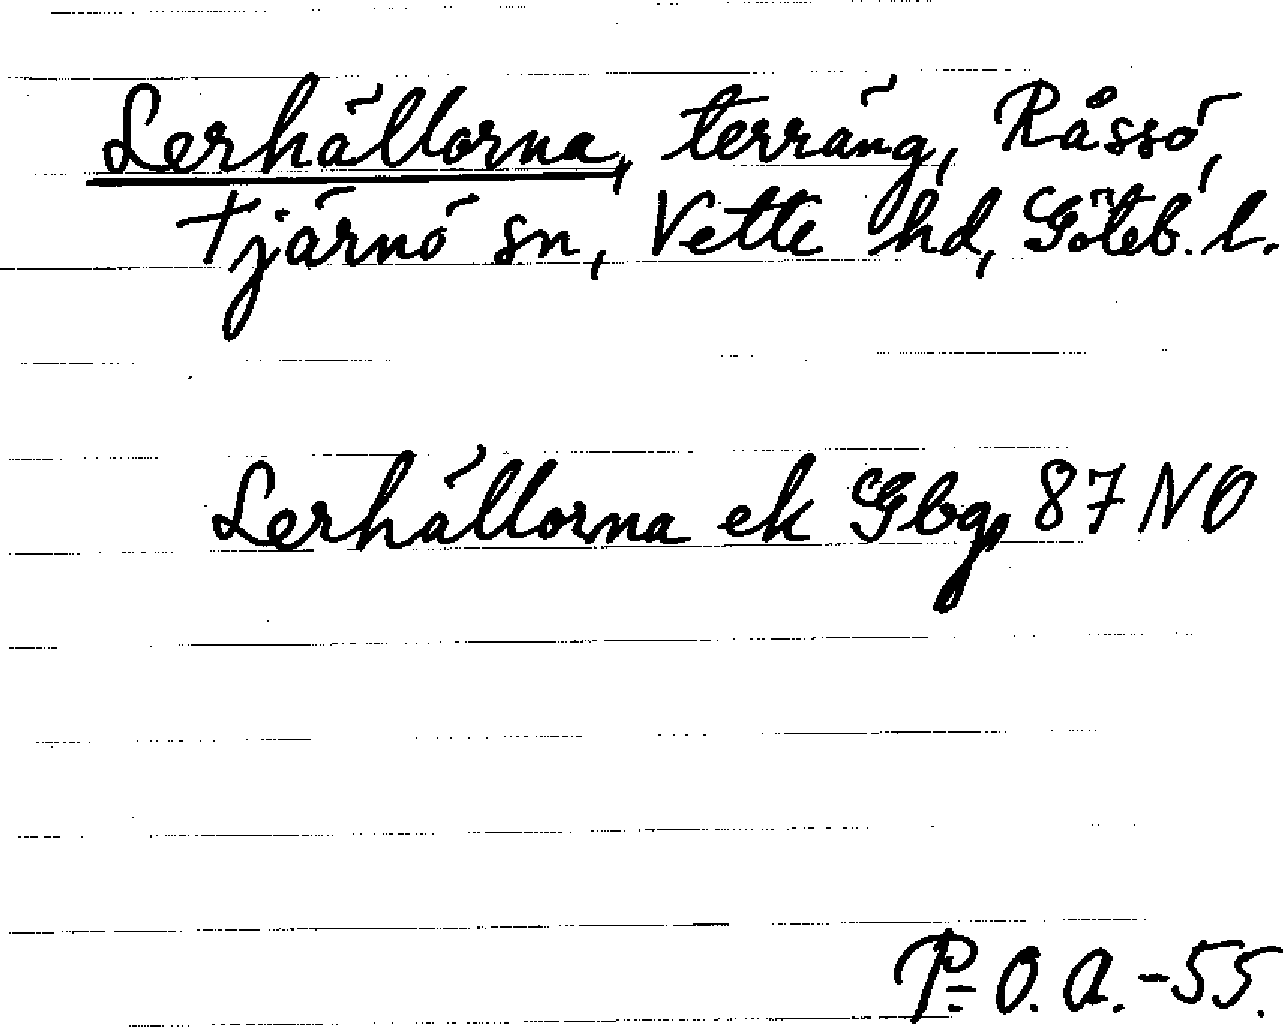 Lerhällorna, terräng, Råssö,
Tjärnö sn, Vette hd, Göteb. l.
Lerhällorna ek Gbg 87 NO
P-O. A. -55.